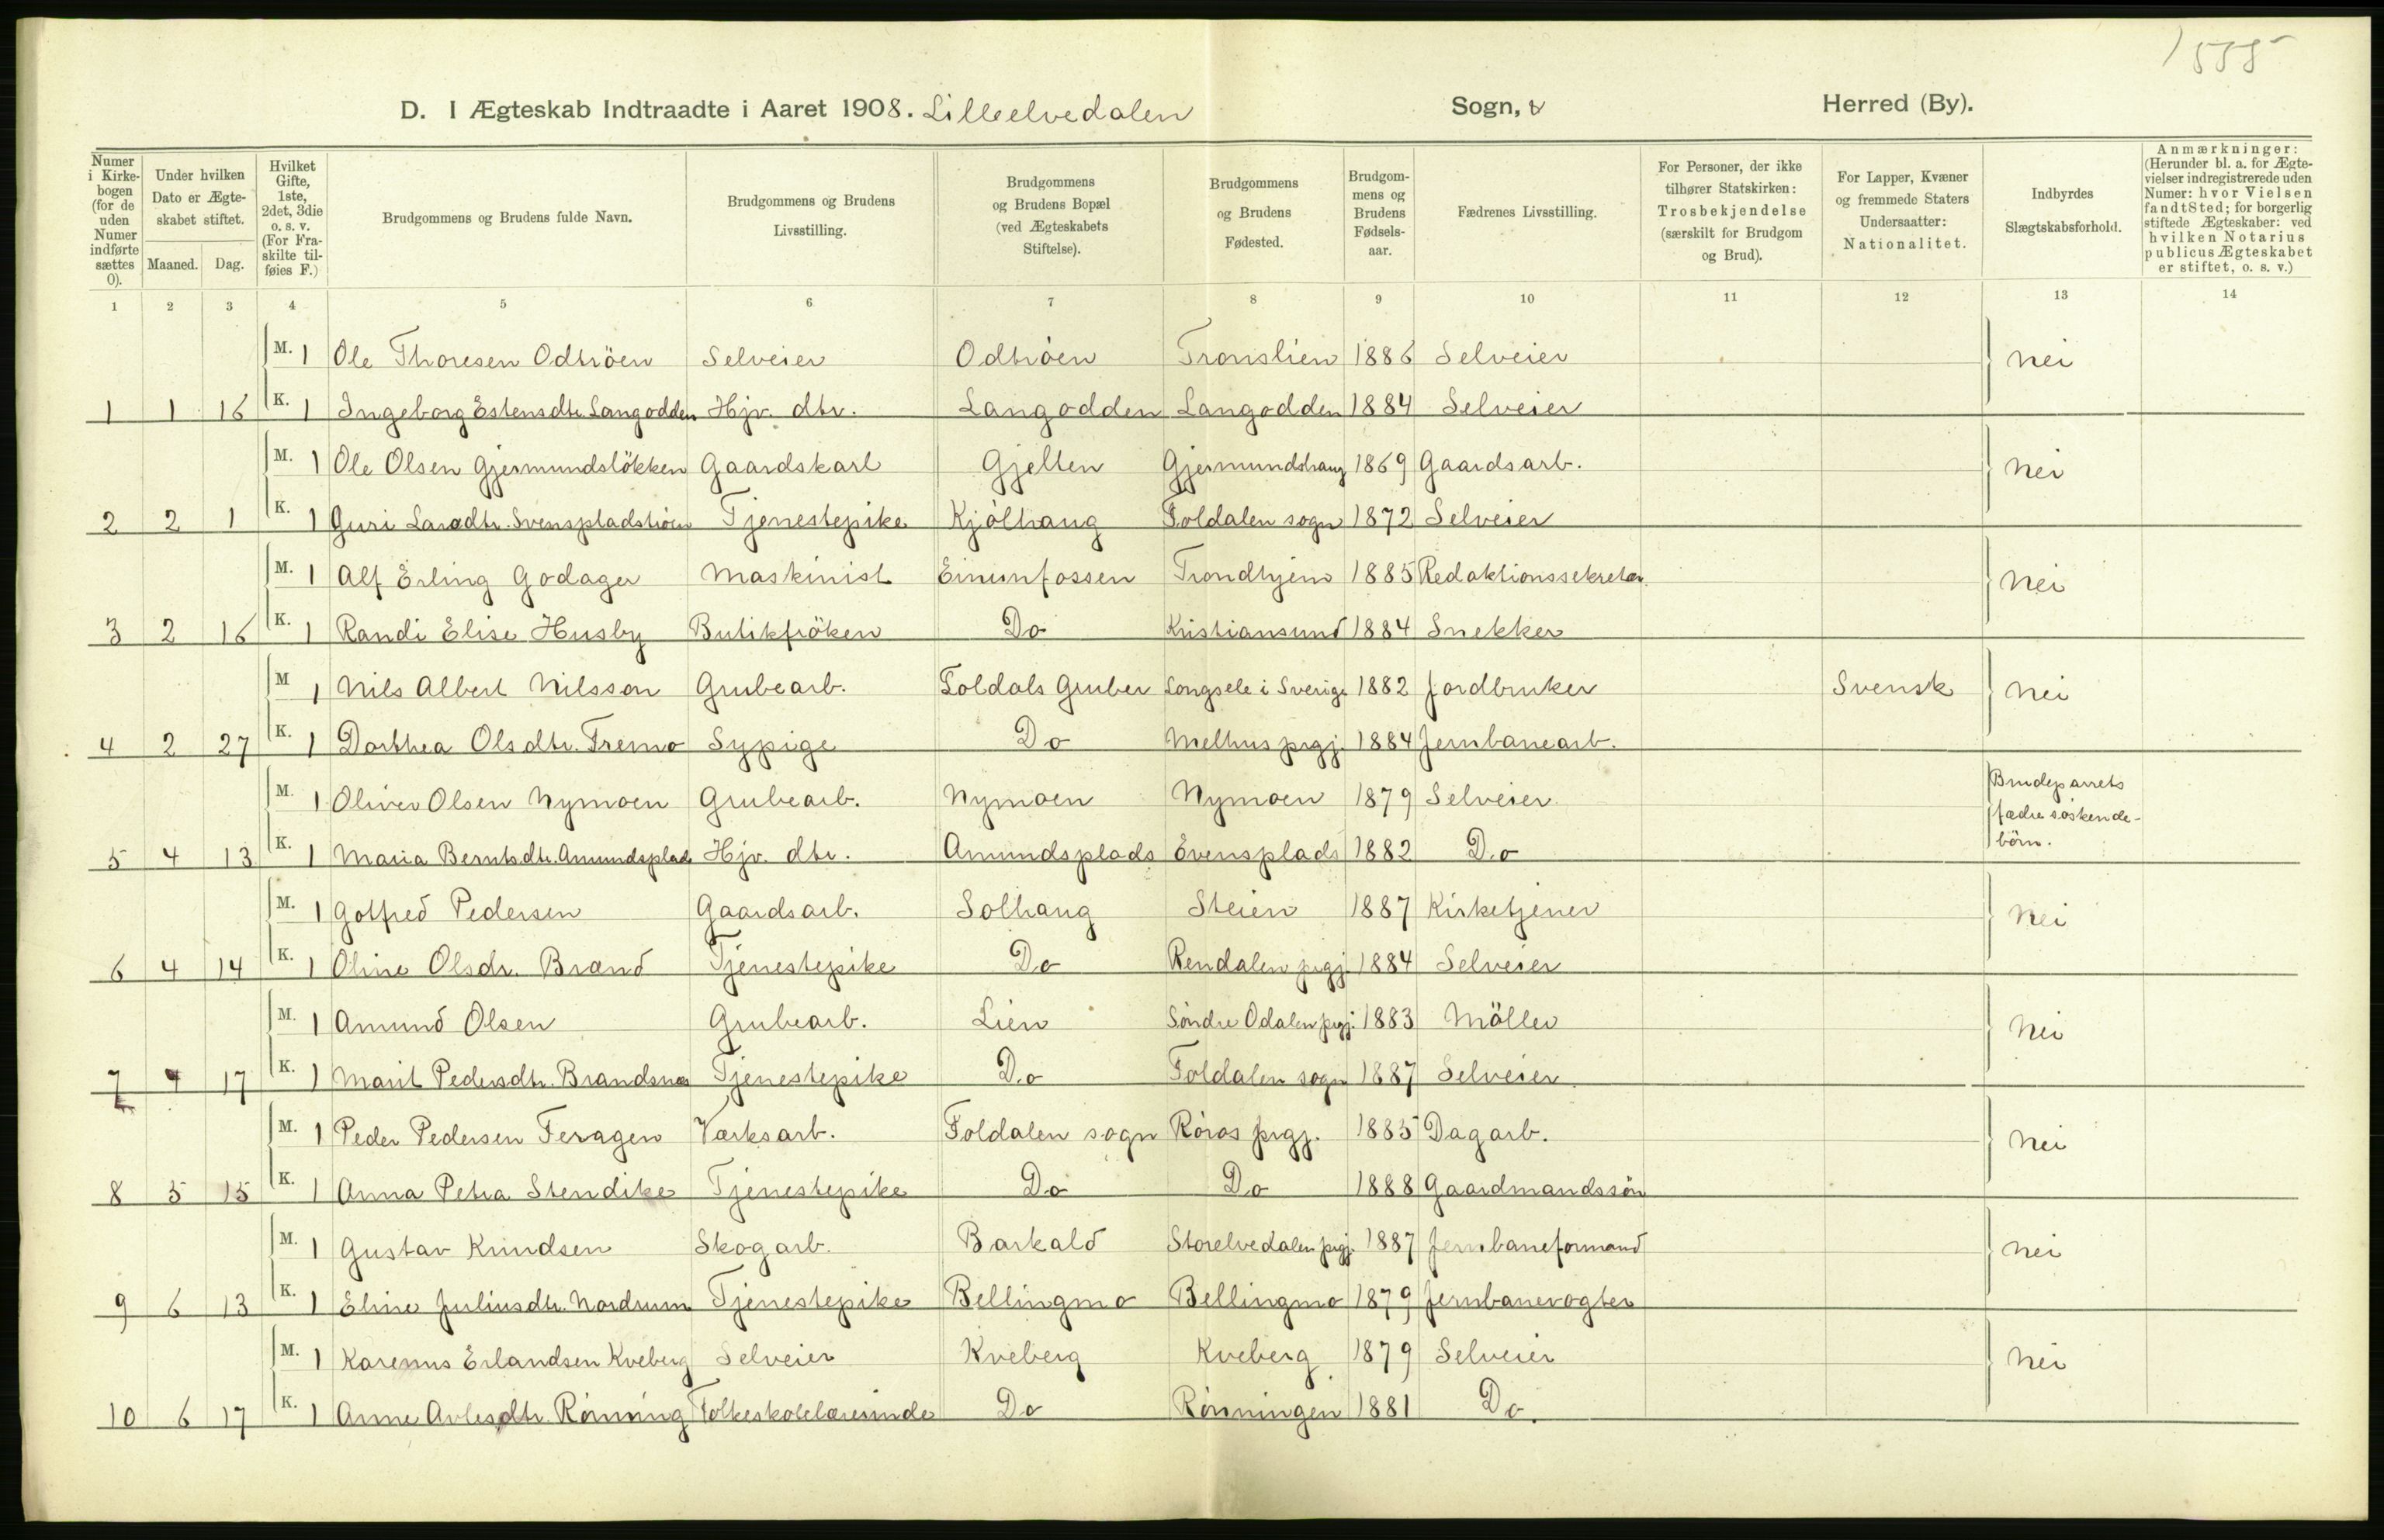 1555
D. I Ægteskab Indtraadte i Aaret 1908. Lilleelvedalen Sogn, Herred (By).
Numer i Kirkebogen (for de uden Numer indførte sættes 0). | Under hvilken Dato er Ægteskabet stiftet. Maaned. Dag. | Hvilket Gifte, 1ste, 2det, 3die o. s. v. (For Fraskilte tilføies F.) | Brudgommens og Brudens fulde Navn. | Brudgommens og Brudens Livsstilling. | Brudgommens og Brudens Bopæl (ved Ægteskabets Stiftelse). | Brudgommens og Brudens Fødested. | Brudgommens og Brudens Fødselsaar. | Fædrenes Livsstilling. | For Personer, der ikke tilhører Statskirken: Trosbekjendelse (særskilt for Brudgom og Brud). | For Lapper, Kvæner og fremmede Staters Undersaatter: Nationalitet. | Indbyrdes Slægtskabsforhold. | Anmærkninger: (Herunder bl. a. for Ægtevielser indregistrerede uden Numer: hvor Vielsen fandt Sted; for borgerlig stiftede Ægteskaber: ved hvilken Notarius publicus Ægteskabet er stiftet, o. s. v.)
1 2 3 4 5 6 7 8 9 10 11 12 13 14
M. 1 Ole Thoresen Odtröen Selveier Odtröen Tronslien 1886 Selveier Nei
1 1 16 K. 1 Ingeborg Estensdtr. Langodden Hjv. dtr. Langodden Langodden 1884 Selveier
M. 1 Ole Olsen Gjermundslökken Gaardskarl Gjelten Gjermundshaug 1869 Gaardsarb. Nei
2 2 1 K. 1 Guri Larsdtr. Svenspladströen Tjenestepike Kjölhaug Foldalen sogn 1872 Selveier
M. 1 Alf Erling Godager Maskinist Einunfossen Trondhjem 1885 Redaktionssekretær Nei
3 2 16 K. 1 Randi Elise Husby Butikfröken Do Kristiansund 1884 Snekker
M 1 Nils Albert Nilsson Grubearb. Foldals Gruber Longsele i Sverige 1882 Jordbruker Svensk Nei
4 2 27 K. 1 Dorthea Olsdtr. Fremo Sypige Do Melhus prgj. 1884 Jernbanearb.
M. 1 Oliver Olsen Nymoen Grubearb. Nymoen Nymoen 1879 Selveier Brudeparrets fædre söskendebörn.
5 4 13 K. 1 Maria Berntsdtr. Amundsplads Hjv. dtr. Amundsplads Evensplads 1882 Do
M. 1 Golfred Pedersen Gaardsarb. Solhaug Steien 1887 Kirketjener Nei
6 4 14 K. 1 Oline Olsdr. Brænd Tjenestepike Do Rendalen prgj. 1884 Selveier
M. 1 Amund Olsen Grubearb. Lien Söndre Odalen prgj. 1883 Möller Nei
7 4 17 K. 1 Marit Pedersdtr. Brandsnes Tjenestepike Do Foldalen sogn 1887 Selveier
M. 1 Peder Pedersen Feragen Værksarb. Foldalen sogn Röros prgj. 1885 Dagarb. Nei
8 5 15 K. 1 Anna Petra Stendike Tjenestepike Do Do 1888 Gaardmandssön
M. 1 Gustav Knudsen Skogarb. Barkald Storelvedalen prgj. 1887 Jernbaneformand Nei
9 6 13 K. 1 Eline Juliusdtr. Nordrum Tjenestepike Bellingmo Bellingmo 1879 Jernbanevogter
M. 1 Karenus Erlandsen Kveberg Selveier Kveberg Kveberg 1879 Selveier Nei
10 6 17 K. 1 Anne Avlesdtr. Rönning Folkeskolelærerinde Do Rönningen 1881 Do.